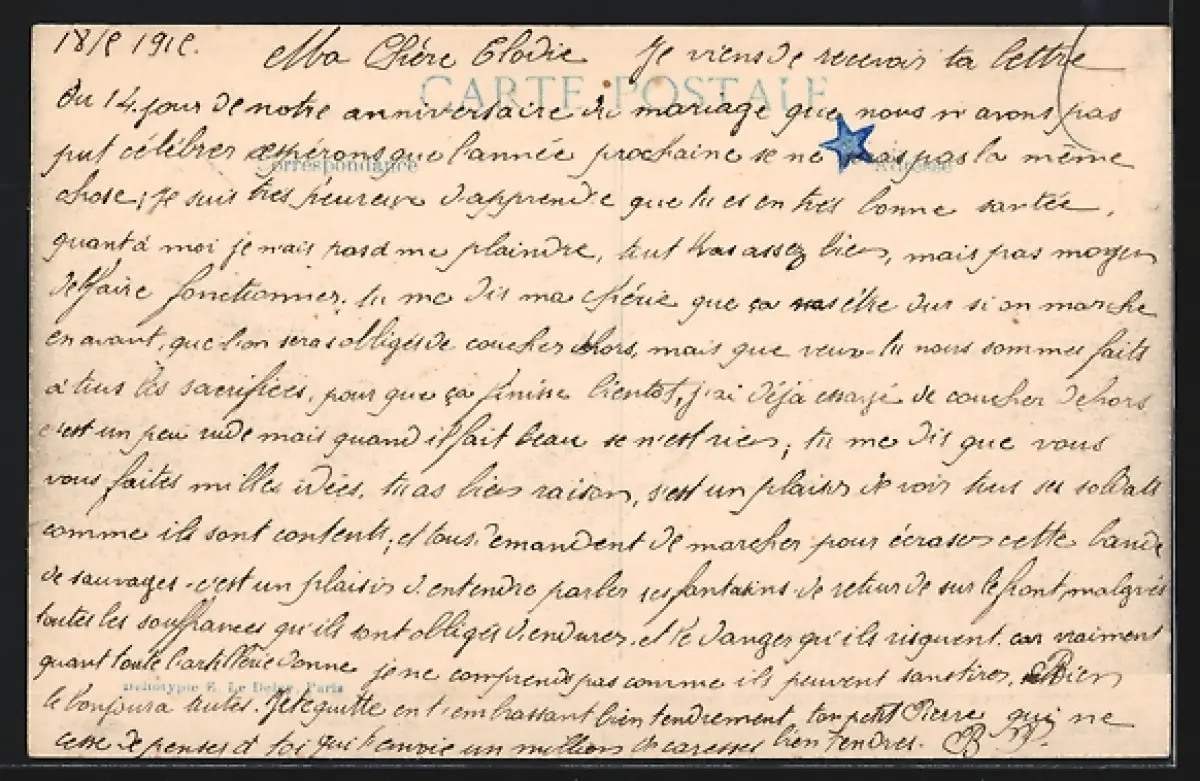 18/ 191
Ma Chère Elodie Je viens de recevoir ta lettre
CARTE POSTALE
Du 14 jour de notre anniversaire de mariage que nous n avons pas
put célébrer espérons que l'année prochaine se ne pas la même
Correspondance Adresse
chose; je suis très heureux d'apprendre que tu es en très bonne santée,
quant à moi je n'ais pas me plaindre, tout vas assez bien, mais pas moyen
de faire fonctionner, tu me dis ma chérie que ça vas être dur si on marche
en avant, que l'on seras obligés de coucher dehors, mais que veux-tu nous sommes faits
à tous les sacrifices, pour que ça finisse bientot, j'ai déjà essayé de coucher dehors
c'est un peu rude mais quand il fait beau se n'est rien; tu me dis que vous
vous faites milles idées, tu as bien raison, s'est un plaisir de voir tous ses soldats
comme ils sont contents, et tous demandent de marcher pour écraser cette bande
de sauvages - c'est un plaisir d'entendre parler ses fantassins de retour de sur le front, malgrés
toutes les souffrances qu'ils sont obligés d'endurer, et le danger qu'ils risquent. car vraiment
quant toute l'artillerie donne je ne comprends pas comme ils peuvent s'en tirer. Bien
E. Le Deley, Paris
le bonjour a toutes. Je te quitte en t'embrassant bien tendrement, ton petit Pierre qui ne
cesse de penser à toi qui t'envoie un million de caresses bien tendres.